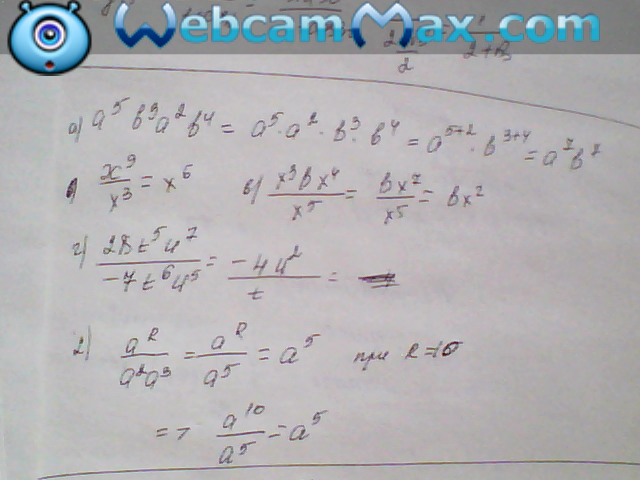 WebcamMax.com
а) a⁵ b³a²b⁴ = a⁵·a²·b³·b⁴ = a⁵⁺²·b³⁺⁴ = a⁷b⁷
б) x⁹/x³ = x⁶ в) x³bx⁴/x⁵ = bx⁷/x⁵ = bx²
г) 28t⁵u⁷/-7t⁶u⁵ = -4u²/t =
д) a^l/a²a³ = a^l/a⁵ = a⁵ при l=10
=> a¹⁰/a⁵ = a⁵